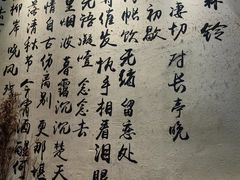 霖铃
凄切 对长亭晚
初歇
帐饮无绪 留恋处
催发 执手相看泪眼
无语凝噎 念去去
里烟波 暮霭沉沉楚天
情自古伤离别 更那堪
落清秋节 今宵酒醒何
柳岸 晓风